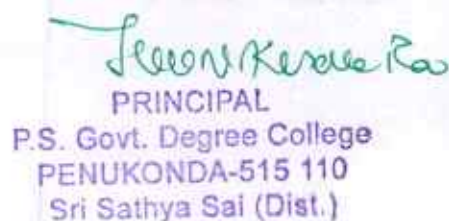 PRINCIPAL
P.S. Govt. Degree College
PENUKONDA-515 110
Sri Sathya Sai (Dist.)